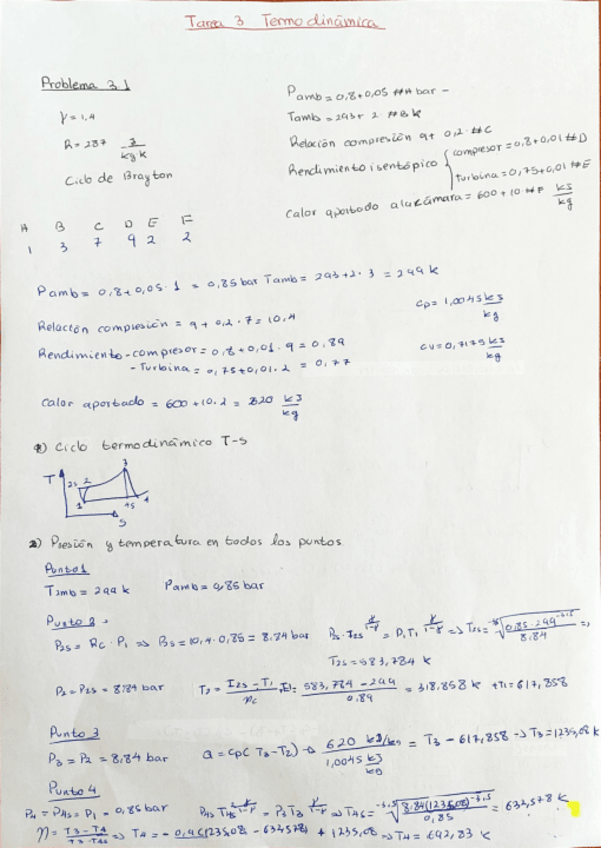 Tarea 3 Termodinâmica
Problema 3.1
γ = 1,4
R = 287 J/kg k
Ciclo de Brayton
Pamb = 0,8 + 0,05 ##A bar -
Tamb = 293 + 2 ##B K
Relación compresión 9 + 0,2 ##C
Rendimiento isentópico { compresor = 0,8 + 0,01 ##D
Turbina = 0,75 + 0,01 ##E
Calor aportado a la cámara = 600 + 10 ##F kJ/kg
A B C D E F
1 3 7 9 2 2
Pamb = 0,8 + 0,05 · 1 = 0,85 bar Tamb = 293 + 2 · 3 = 299 k
Relación compresión = 9 + 0,2 · 7 = 10,4
Cp = 1,0045 kJ/kg
Rendimiento - compresor = 0,8 + 0,01 · 9 = 0,89
- Turbina = 0,75 + 0,01 · 2 = 0,77
Cv = 0,7175 kJ/kg
Calor aportado = 600 + 10 · 2 = 620 kJ/kg
1) Ciclo termodinâmico T-s
T
2s 2 3
1 4s 4
S
2) Presión y temperatura en todos los puntos
Punto 1
Tamb = 299 k Pamb = 0,85 bar
Punto 2
P2s = Rc · P1 => P2s = 10,4 · 0,85 = 8.84 bar P2 · T2s^(γ/1-γ) = P1 T1^(γ/1-γ) => T2s = ^-3,5√(0,85 · 299^-3,5 / 8,84) =>
T2s = 583,784 k
P2 = P2s = 8,84 bar T2 = (T2s - T1)/ηc + T1 = (583,784 - 299)/0,89 = 318,858 k + T1 = 617,858
Punto 3
P3 = P2 = 8,84 bar Q = Cp (T3 - T2) -> 620 kJ/kg / 1,0045 kJ/kg = T3 - 617,858 -> T3 = 1235,08 k
Punto 4
P4 = P4s = P1 = 0,85 bar P4s T4s^(γ/1-γ) = P3 T3^(γ/1-γ) => T4s = ^-3,5√(8,84 (1235,08)^-3,5 / 0,85) = 632,578 k
η = (T3 - T4)/(T3 - T4s) => T4 = (1235,08 - 632,578) + 1235,08 -> T4 =